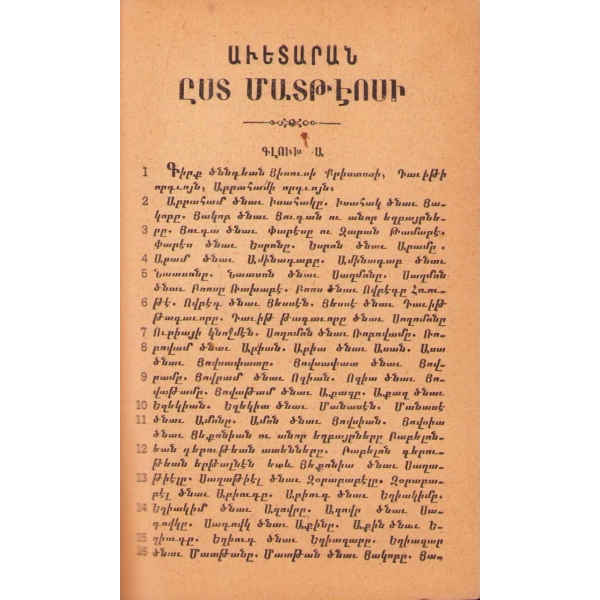 ԱՒԵՏԱՐԱՆ
ԸՍՏ ՄԱՏԹԷՈՍԻ
ԳԼՈՒԽ Ա
1 Գիրք ծննդեան Յիսուսի Քրիստոսի, Դաւիթի
որդւոյն, Աբրահամի որդւոյն։
2 Աբրահամ ծնաւ Իսահակը. Իսահակ ծնաւ Յա-
կոբը. Յակոբ ծնաւ Յուդան ու անոր եղբայրնե-
3 րը. Յուդա ծնաւ Փարէսը ու Զարան Թամարէ.
Փարէս ծնաւ Եսրոնը. Եսրոն ծնաւ Արամը.
4 Արամ ծնաւ Ամինադաբը. Ամինադաբ ծնաւ
5 Նաասոնը. Նաասոն ծնաւ Սաղմոնը. Սաղմոն
ծնաւ Բոոսը Ռախաբէ. Բոոս ծնաւ Ովբէդը Հռու-
6 թէ. Ովբէդ ծնաւ Յեսսէն. Յեսսէ ծնաւ Դաւիթ
թագաւորը. Դաւիթ թագաւորը ծնաւ Սողոմոնը
7 Ուրիայի կնոջմէն. Սողոմոն ծնաւ Ռոբովամը. Ռո-
8 բովամ ծնաւ Աբիան. Աբիա ծնաւ Ասան. Ասա
ծնաւ Յովսափատը. Յովսափատ ծնաւ Յով-
9 րամը. Յովրամ ծնաւ Ոզիան. Ոզիա ծնաւ Յո-
վաթամը. Յովաթամ ծնաւ Աքազը. Աքազ ծնաւ
10 Եզեկիան. Եզեկիա ծնաւ Մանասէն. Մանասէ
11 ծնաւ Ամոնը. Ամոն ծնաւ Յովսիան. Յովսիա
ծնաւ Յեքոնիան ու անոր եղբայրները Բաբելոն-
12 եան գերութեան ատենները. Բաբելոն գերու-
թեան երթալնէն ետև Յեքոնիա ծնաւ Սաղա-
13 թիէլը. Սաղաթիէլ ծնաւ Զօրաբաբէլը. Զօրաբա-
բէլ ծնաւ Աբիուդը. Աբիուդ ծնաւ Եղիակիմը.
14 Եղիակիմ ծնաւ Ազովրը. Ազովր ծնաւ Սա-
դովկը. Սադովկ ծնաւ Աքինը. Աքին ծնաւ Ե-
15 ղիուդը. Եղիուդ ծնաւ Եղիազարը. Եղիազար
16 ծնաւ Մատթանը. Մատթան ծնաւ Յակոբը. Յա-